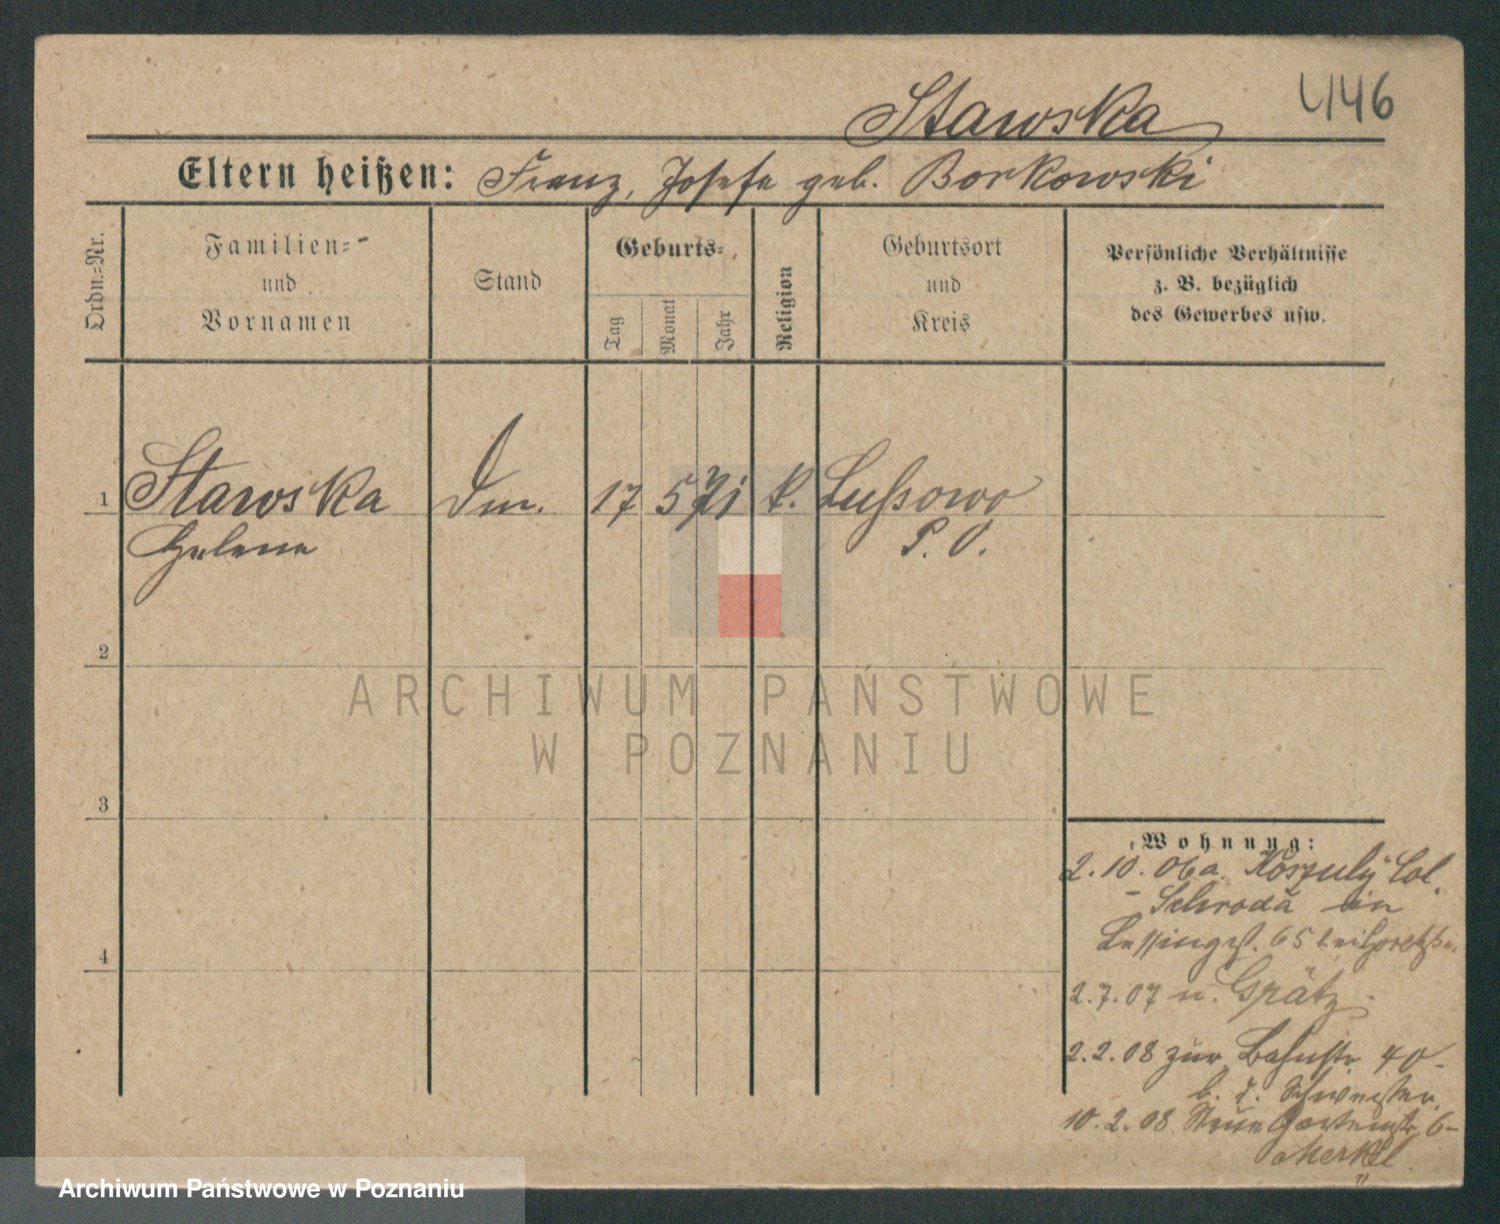 Stawska
446
Eltern heißen: Franz, Josefa geb. Borkowski
Ordn.=Nr.
Familien=
und
Vornamen
Stand
Geburts=
Tag
Monat
Jahr
Religion
Geburtsort
und
Kreis
Persönliche Verhältnisse
z. B. bezüglich
des Gewerbes usw.
1 Stawska Dm. 17 5 71 k. Lussowo
Helene P. O.
2
ARCHIWUM PAŃSTWOWE
W POZNANIU
3
Wohnung:
2.10.06 a. Koszuly Col.
- Schroda in
Lessingst. 65 bei
4
2.7.07 n. Grätz
2.2.08 zur Bahnstr. 40
b. d. Schwester
10.2.08 Neue Gartenstr. 6-
Merkel
Archiwum Państwowe w Poznaniu